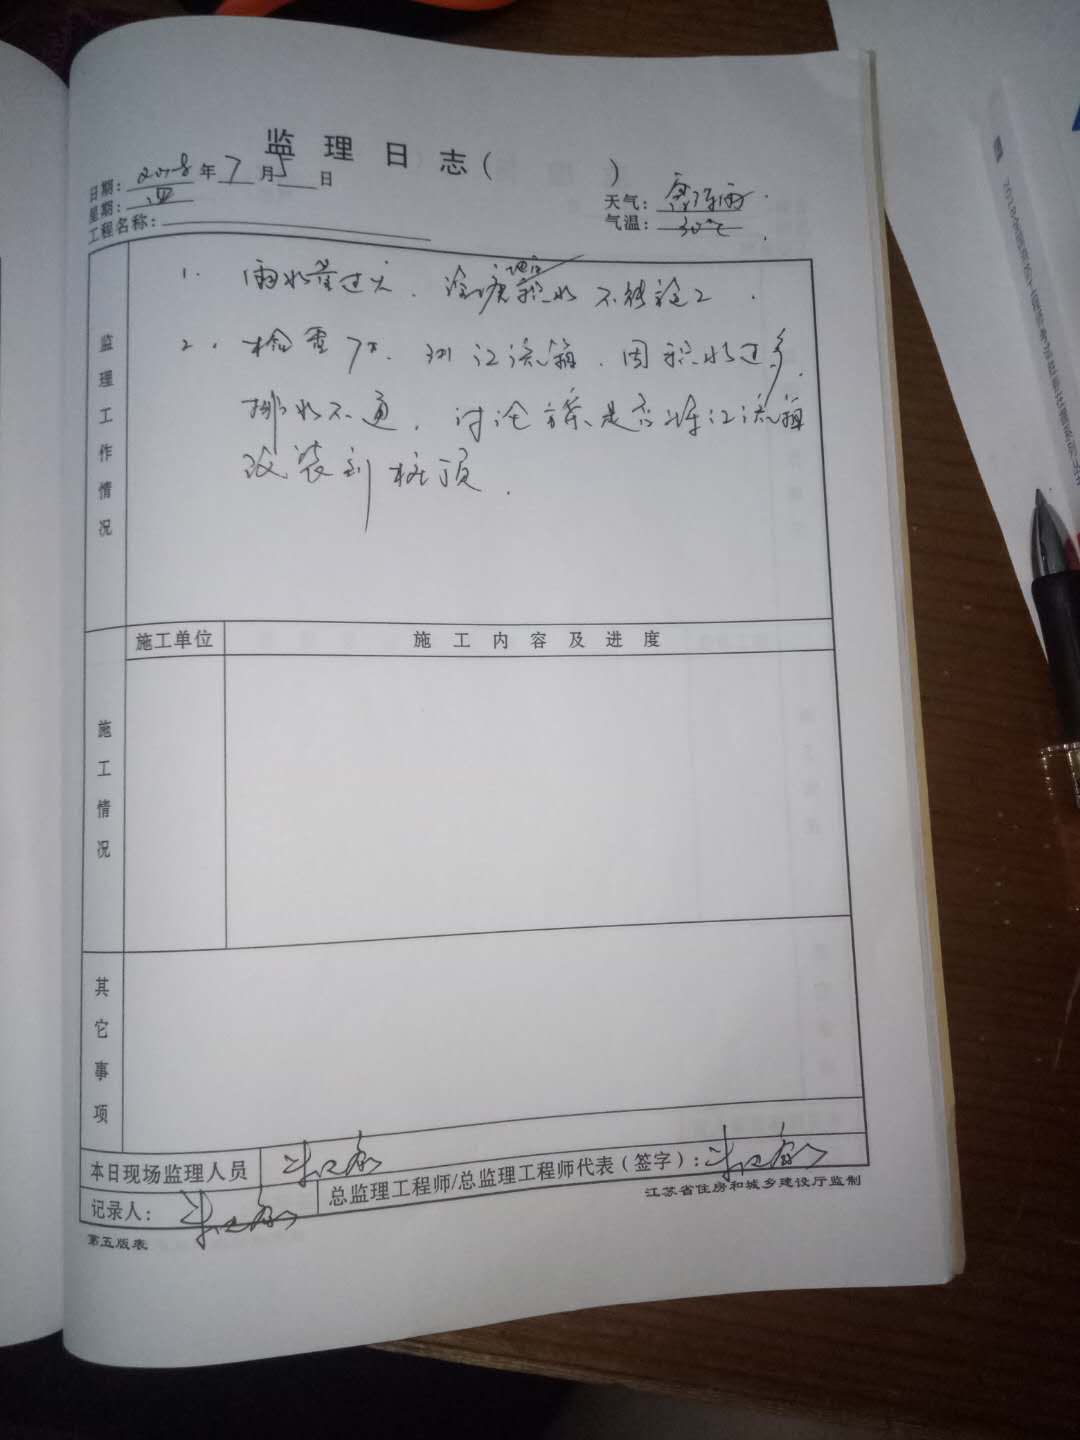 监理日志( )
日期: 2018年7月5日
星期: 四
天气: 雷阵雨
气温: 30℃
工程名称:
监理工作情况
1. 雨水量过大. 积水 不能施工.
2. 检查 汇流箱. 因积水过多.
排水不通. 讨论方案是否将汇流箱
改装到柱顶.
施工单位
施工内容及进度
施工情况
其它事项
本日现场监理人员
总监理工程师/总监理工程师代表(签字):
记录人:
江苏省住房和城乡建设厅监制
第五版表